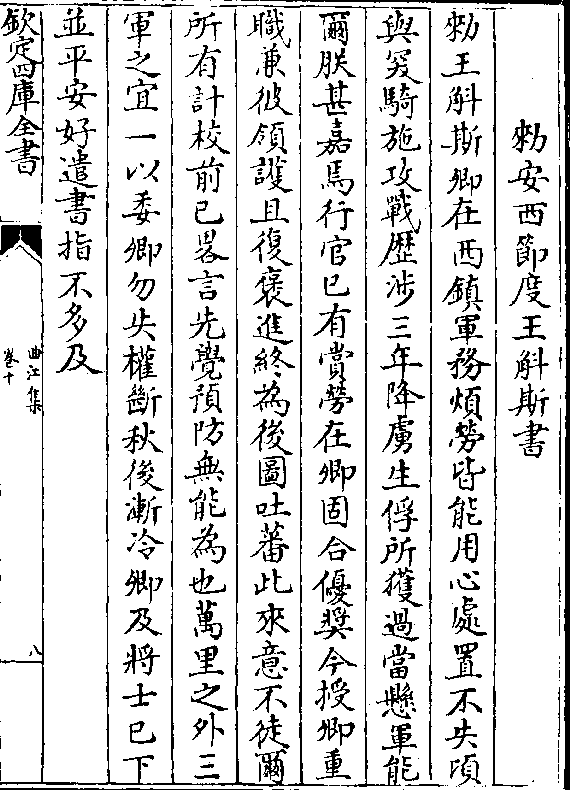 勅安西節度王斛斯書
勅王斛斯卿在西鎮軍務煩勞皆能用心處置不失頃
與突騎施攻戰歴渉三年降虜生俘所獲過當懸軍能
爾朕甚嘉焉行官已有賞勞在卿固合優奬今授卿重
職兼彼領護且復褒進終為後圖吐蕃此來意不徒爾
所有計校前已畧言先覺預防無能為也萬里之外三
軍之宜一以委卿勿失權斷秋後漸冷卿及將士已下
並平安好遣書指不多及
欽定四庫全書
曲江集
卷十
八